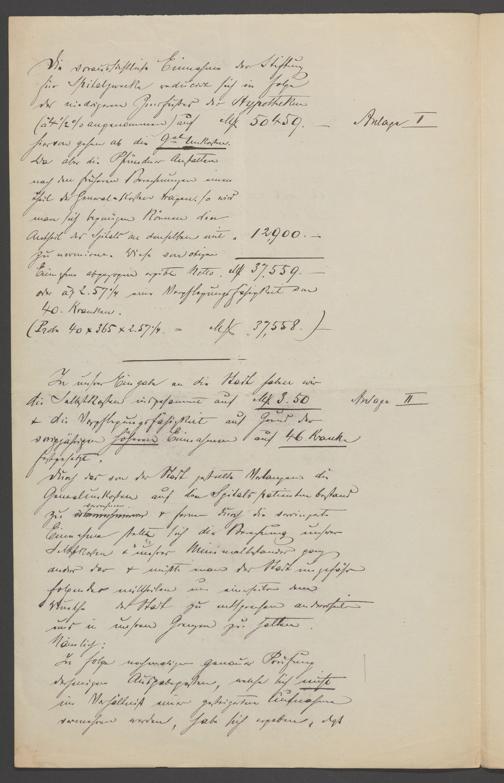 Die voraussichtliche Einnahme der Stiftung
für Spitalzwecke reducirt sich in Folge
des niedrigeren Zinsfußes der Hypotheken
(à 4½% angenommen) auf Mk 50459. — Anlage I
hiervon gehen ab die Gal Unkosten.
Da aber die Pfründner Anstalten
nach den früheren Berechnungen einen
Theil der General-Kosten tragen, so wird
man sich begnügen können den
Antheil des Spitals an denselben mit „ 12900. —
zu normieren. Diese von obigen
Einnahme abgezogen ergeben Netto. Mk 37,559. —
oder à 2.57¼ eine Verpflegungsfähigkeit von
40. Kranken.
(Probe 40 x 365 x 2.57¼. = Mk 37,558. ) —
In unser Eingabe an die Stadt haben wir
die Selbstkosten insgesammt auf Mk 3.50 Anlage II
& die Verpflegungsfähigkeit auf Grund der
vorigjährigen höheren Einnahmen auf 46 Kranke
festgesetzt.
Durch das von der Stadt gestellte Verlangen die
Generalunkosten auf den Spitals patienten bestand
zu & ferner durch die verringerte
Einnahme stellt sich die Berechnung unserer
Selbstkosten & unsrer Minimalbestandes ganz
anders dar & müßte man der Stadt ungefähr
folgendes mittheilen um einerseits dem
Wunsche der Stadt zu entsprechen andrerseits
uns in unseren Grenzen zu halten.
Nämlich:
In Folge nochmaliger genauer Prüfung
derjenigen Ausgabeposten, welche sich nicht
im Verhältniß einer gesteigerten Aufnahme
vermehren werden, habe sich ergeben, daß